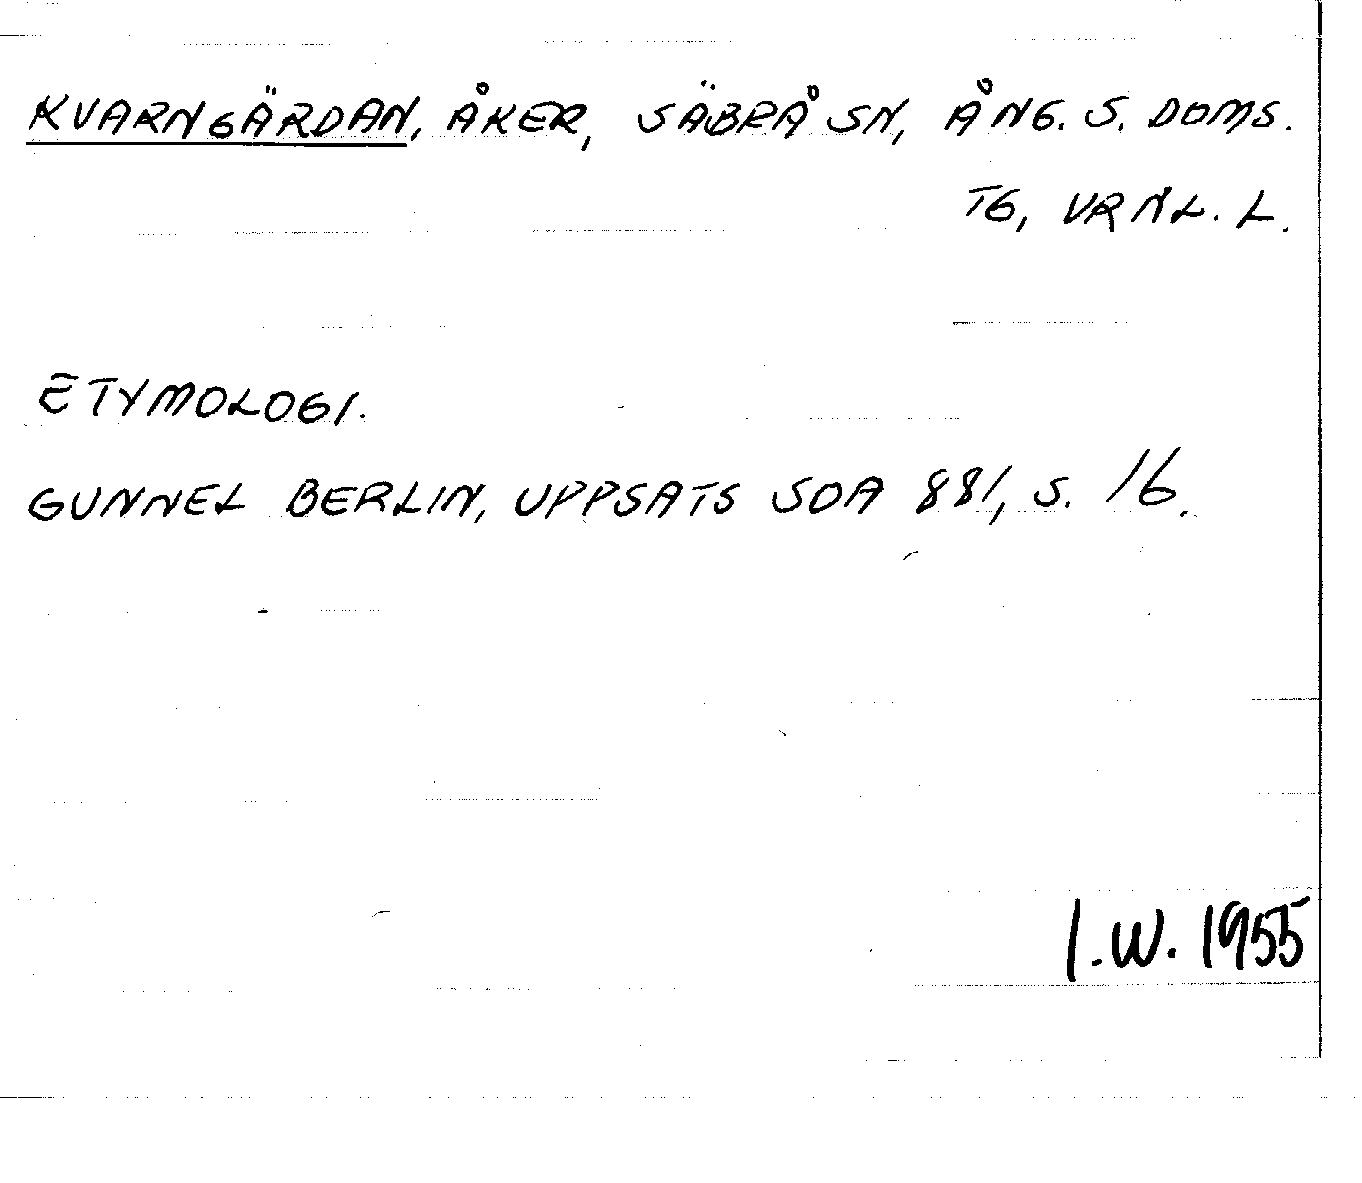 KVARNGÄRDAN, ÅKER, SÄBRÅ SN, ÅNG. S. DOMS.
TG, VRNL. L.
ETYMOLOGI.
GUNNEL BERLIN, UPPSATS SOA 881, S. 16.
I.W. 1955